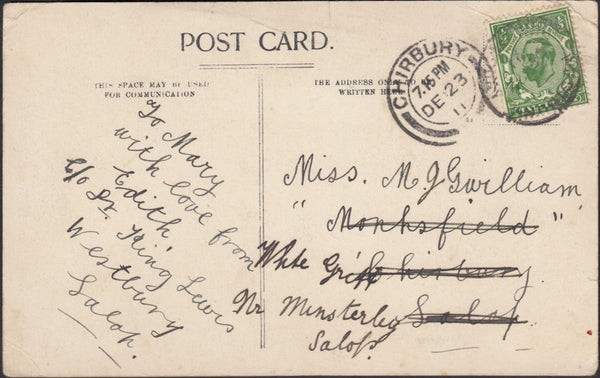 POST CARD.
THIS SPACE MAY BE USED
FOR COMMUNICATION
THE ADDRESS ONLY TO BE
WRITTEN HERE
CHIRBURY
7.15 PM
DE 23
11
To Mary
with love from
Edith
c/o King Lewis
Westbury
Salop.
Miss. M. J Gwilliam
"Monksfield"
Chirbury
Salop
White Grit
Nr Minsterley
Salop.